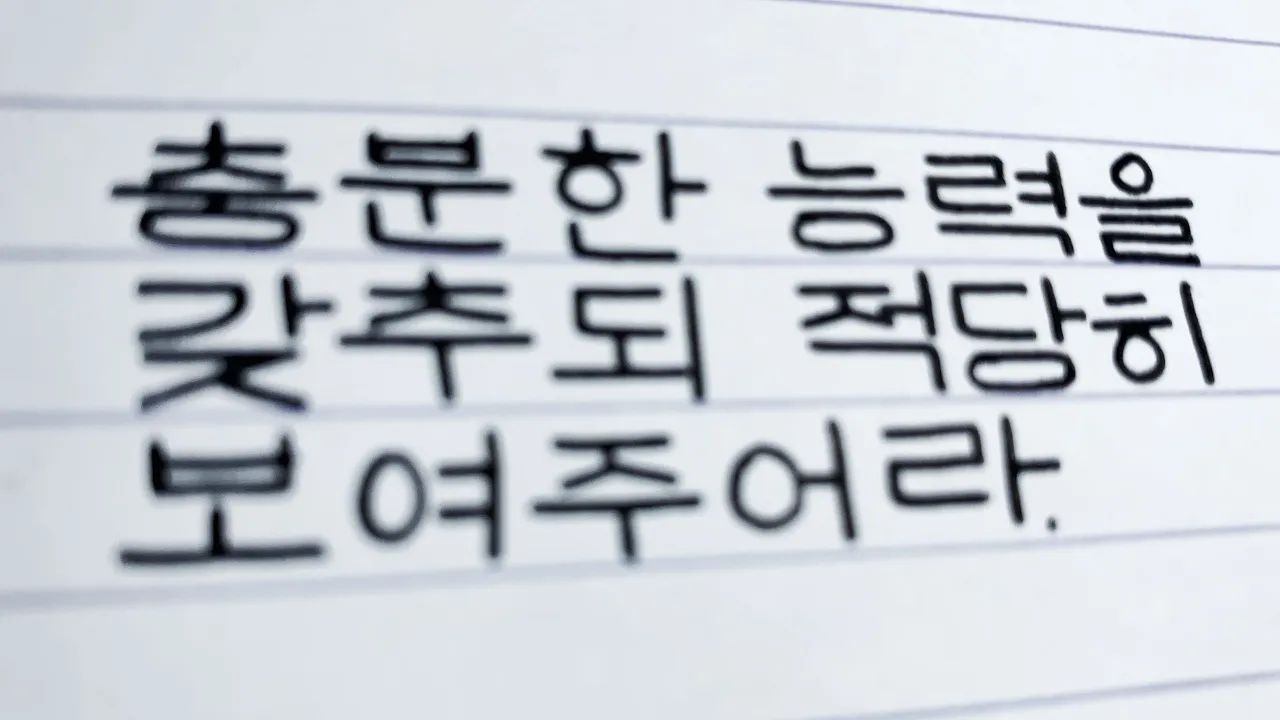 충분한 능력을
갖추되 적당히
보여주어라.